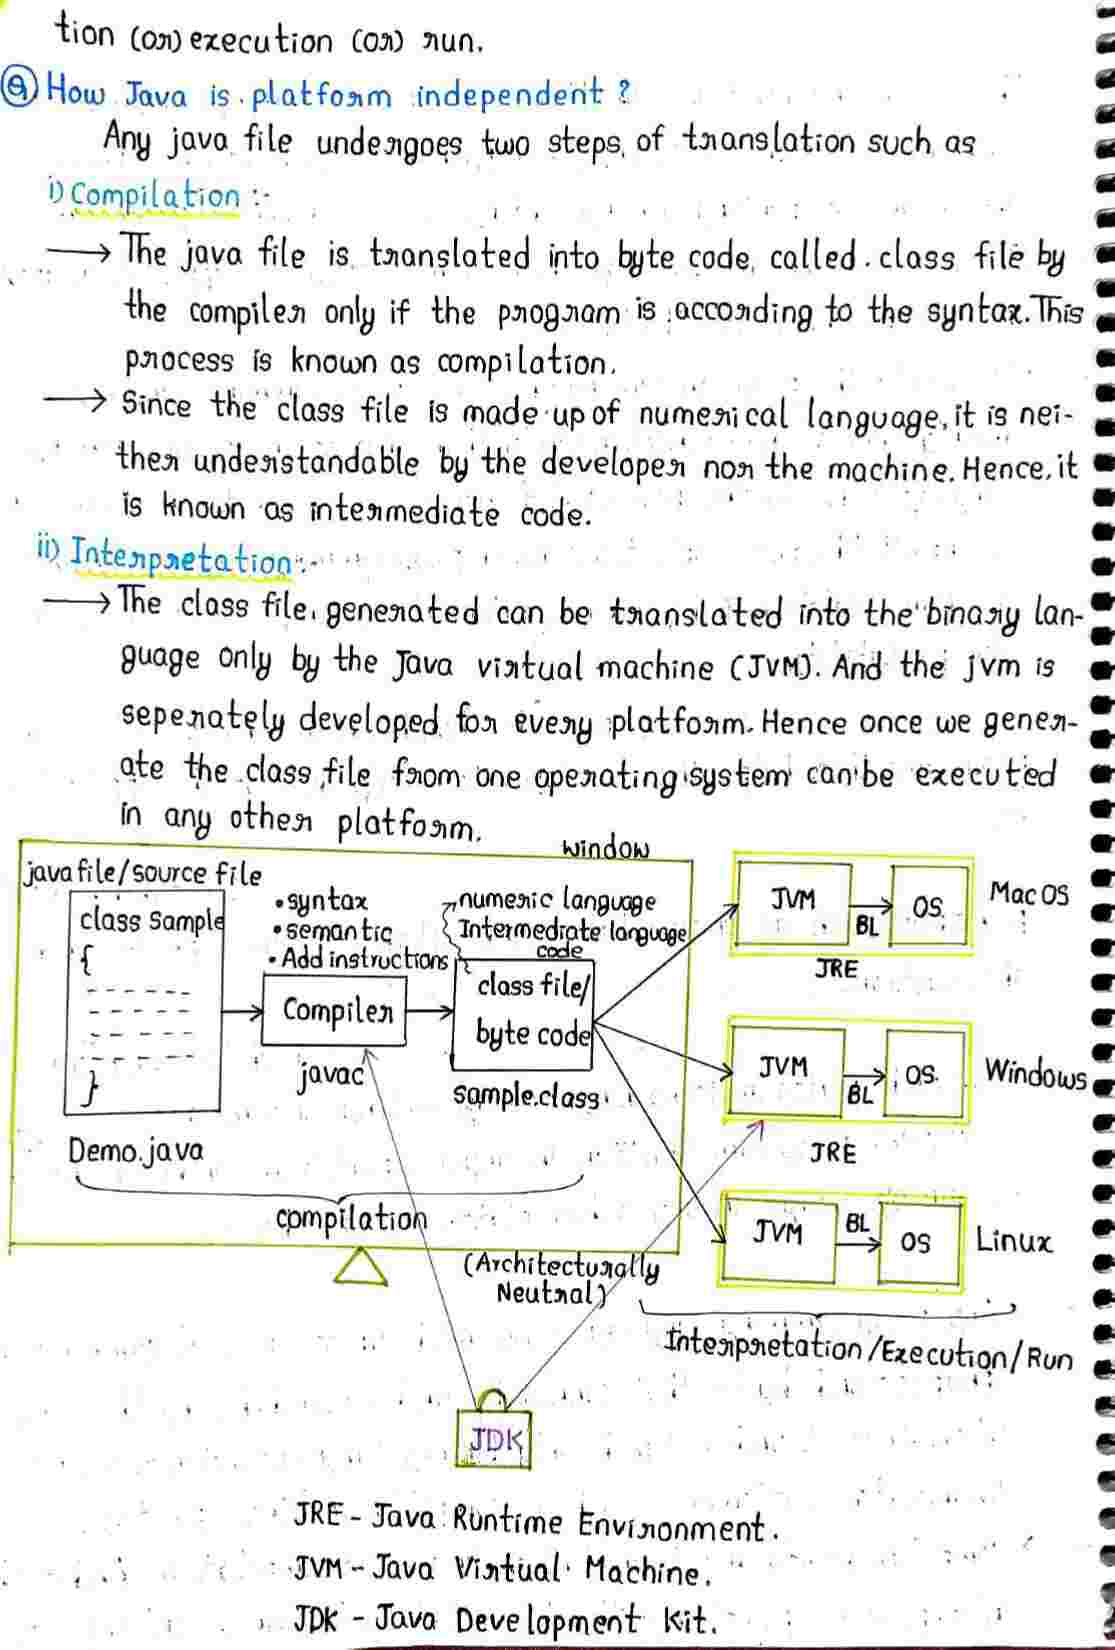 tion (or) execution (or) run.
Q How Java is platform independent ?
Any java file undergoes two steps of translation such as
i) Compilation :-
→ The java file is translated into byte code, called .class file by
the compiler only if the program is according to the syntax. This
process is known as compilation.
→ Since the class file is made up of numerical language, it is nei-
ther understandable by the developer nor the machine. Hence, it
is known as intermediate code.
ii) Interpretation :-
→ The class file, generated can be translated into the binary lan-
guage only by the Java virtual machine (JVM). And the jvm is
seperately developed for every platform. Hence once we gener-
ate the class file from one operating system can be executed
in any other platform.
window
java file/source file
class Sample
{
}
Demo.java
• syntax
• semantic
• Add instructions
Compiler
javac
numeric language
Intermediate language
code
class file/
byte code
sample.class
compilation
JVM
BL
OS
Mac OS
JRE
JVM
BL
OS
Windows
JRE
JVM
BL
OS
Linux
(Architecturally
Neutral)
Interpretation/Execution/Run
JDK
JRE - Java Runtime Environment.
JVM - Java Virtual Machine.
JDK - Java Development Kit.